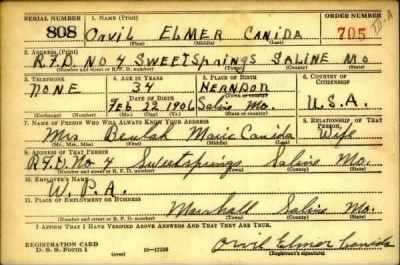 SERIAL NUMBER 1. NAME (Print) ORDER NUMBER
808 Orvil ELMER CANIDA 705
(First) (Middle) (Last)
2. ADDRESS (Print)
R.F.D. No 4 SWEETSprings SALINE Mo.
(Number and street or R. F. D. number) (Town) (County) (State)
3. TELEPHONE 4. AGE IN YEARS 5. PLACE OF BIRTH 6. COUNTRY OF CITIZENSHIP
NONE 34 HERNDON
DATE OF BIRTH (Town or county)
Feb 22 1906 Saline Mo. U.S.A.
(Mo.) (Day) (Yr.) (State or country)
7. NAME OF PERSON WHO WILL ALWAYS KNOW YOUR ADDRESS 8. RELATIONSHIP OF THAT PERSON
Mrs. Beulah Marie Canida Wife
(Mr., Mrs., Miss) (First) (Middle) (Last)
9. ADDRESS OF THAT PERSON
R.F.D. No 4 Sweetsprings Saline Mo.
(Number and street or R. F. D. number) (Town) (County) (State)
10. EMPLOYER'S NAME
W.P.A.
11. PLACE OF EMPLOYMENT OR BUSINESS
Marshall Saline Mo.
(Number and street or R. F. D. number) (Town) (County) (State)
I AFFIRM THAT I HAVE VERIFIED ABOVE ANSWERS AND THAT THEY ARE TRUE.
REGISTRATION CARD
D. S. S. Form 1 (over) 16-17105 Orvil Elmer Canida
(Registrant's signature)